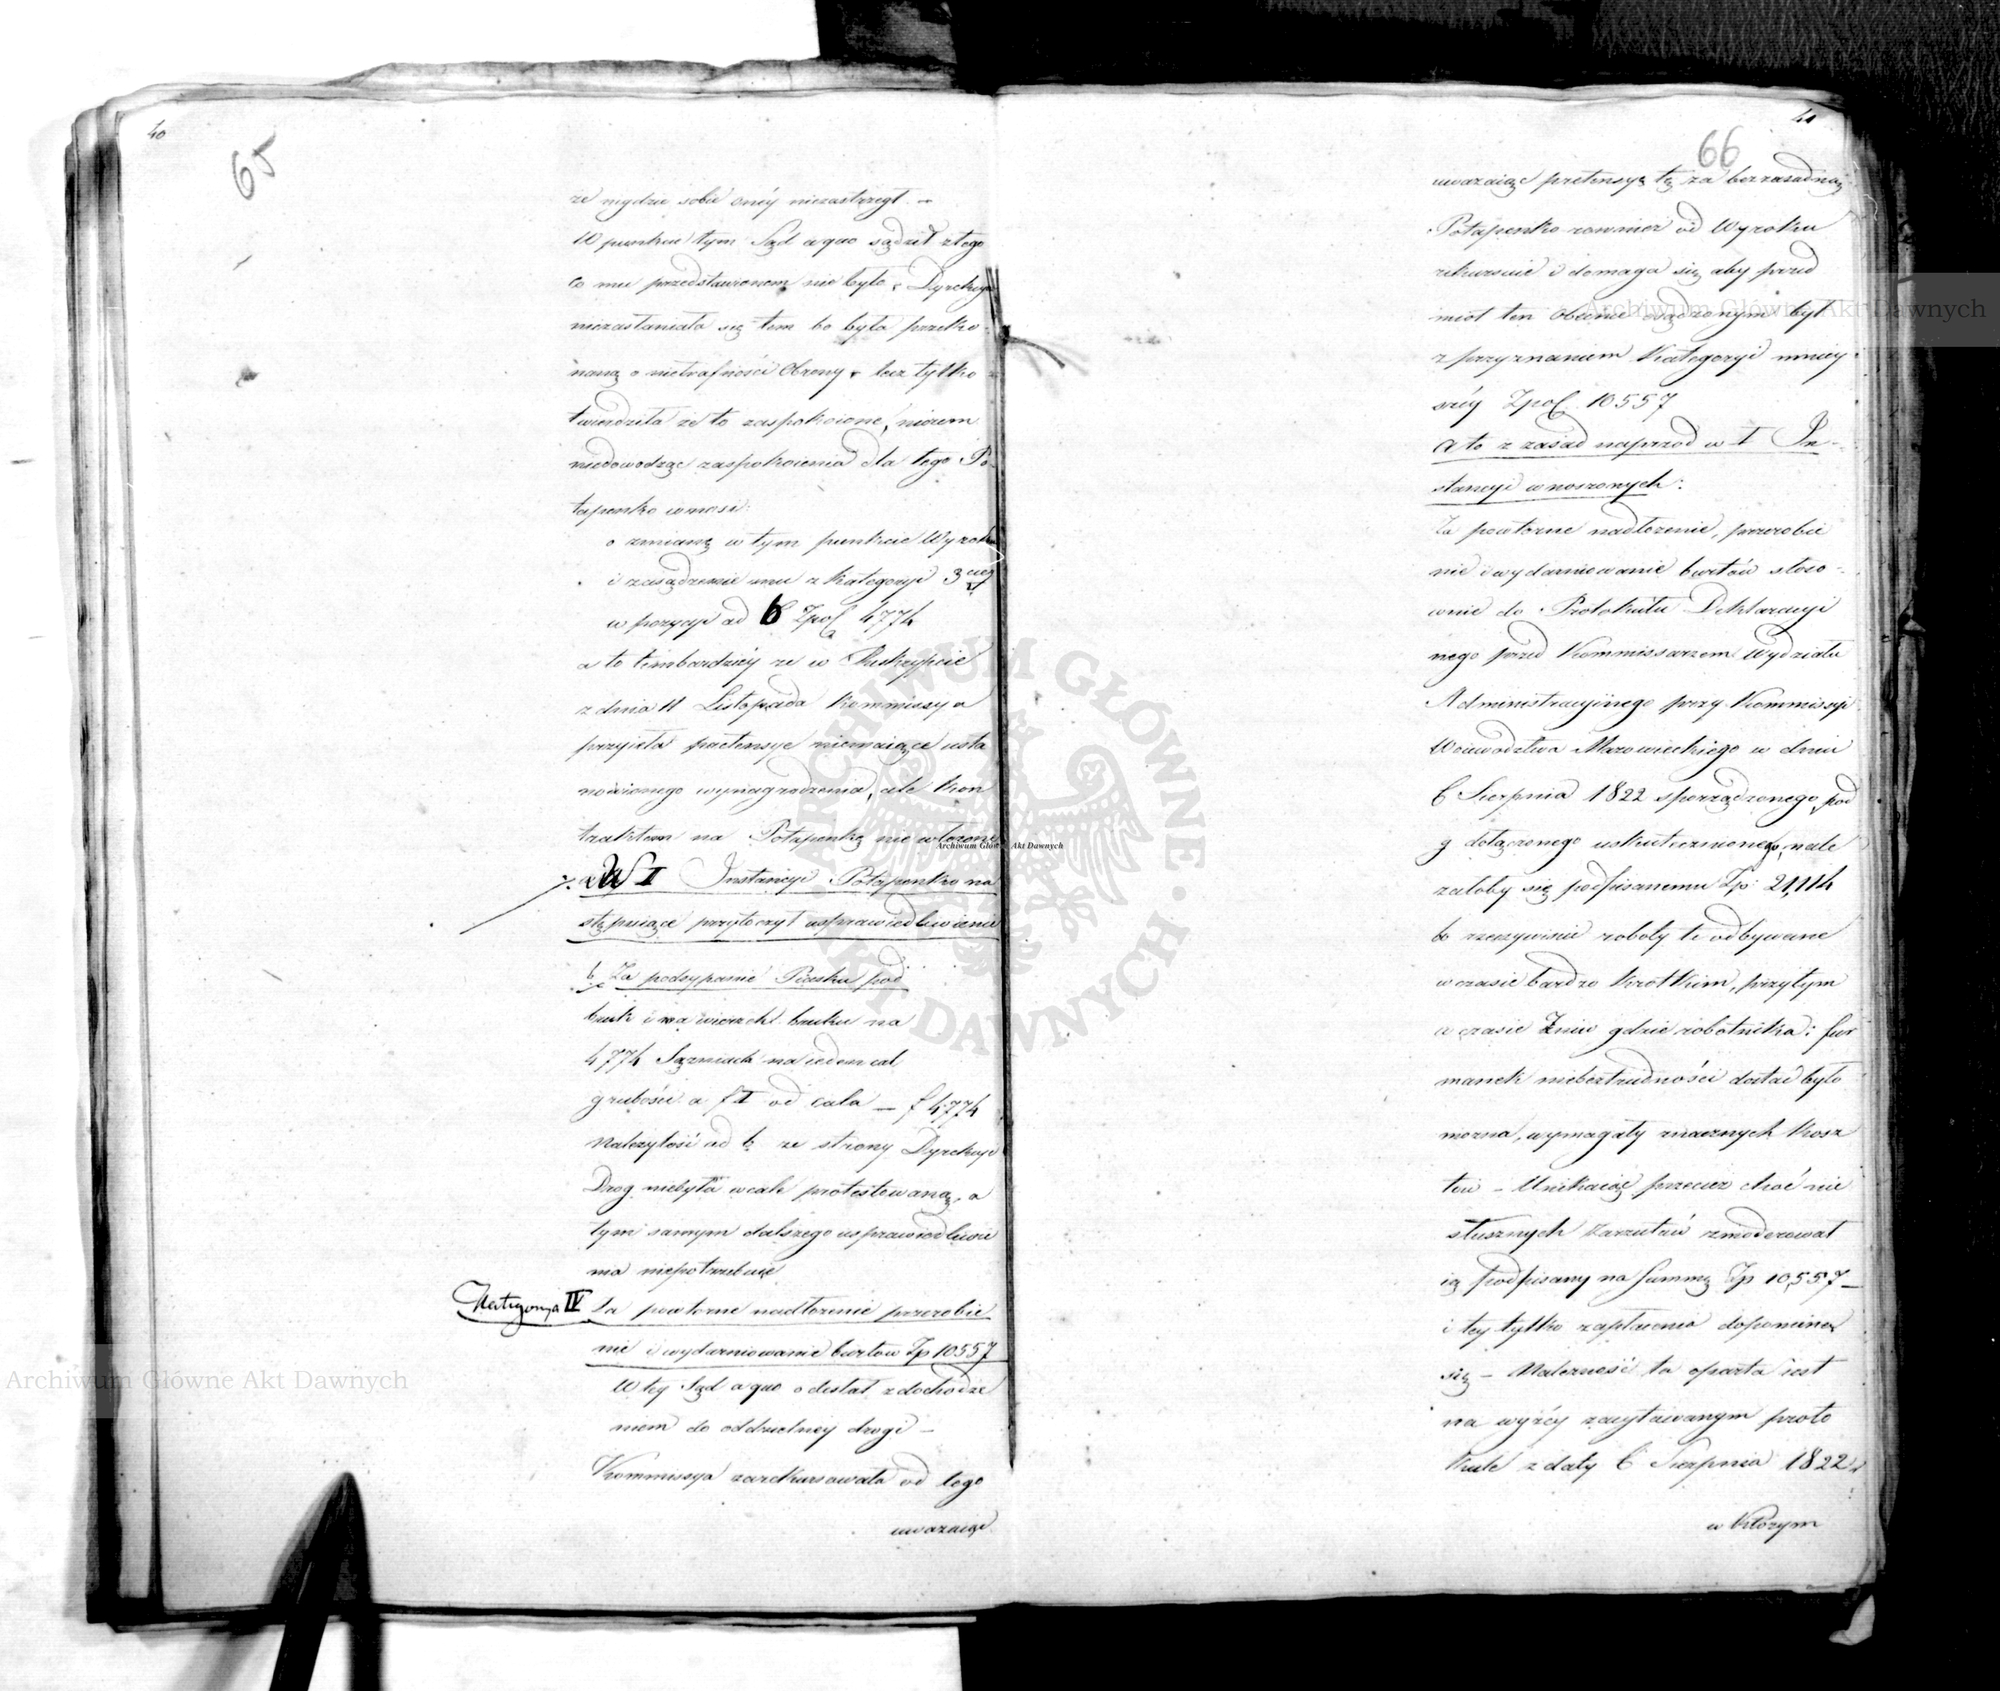 40
65
że nigdzie sobie onéy niezastrzegł. —
W punkcie tym Sąd a quo sądził z tego
co mu przedstawionem nie było, Dyrekcya
niezasłaniała się tem bo była przeko-
naną o nietrafności Obrony, lecz tylko
twierdziła że to zaspokoione, niczem
niedowodząc zaspokoienia dla tego Po-
tapenko wnosi:
o zmianę w tym punkcie Wyroku
i zasądzenie mu z kategoryi 3ciey
w pozycyi ad b Zpol 4774
a to tembardziéy że w Reskrypcie
z dnia 11 Listopada Kommissya
przyjęła pretensye niemaiące usta
nowionego wynagrodzenia, ale kon
traktem na Potapenkę nie włożone
W II Instancyi Potapenko na
stępuiące przytoczył usprawiedliwienie
b Za podsypanie Piasku pod
bruk i na wierzch bruku na
4774 Sążniach na ieden cal
grubości a f 1 od cala — f 4,774
Należytość ad b, ze strony Dyrekcyi
Drog niebyła wcale protestowaną, a
tym samym dalszego usprawiedliwie
nia niepotrzebuie
Kategorya IV Za powtorne nadłożenie przerobie
nie i wydarniowanie burtow Zp 10557
W tey Sąd a quo odesłał z dochodze
niem do oddzielney drogi —
Kommissya zarekursowała od tego
uważaiąc
41
66
uważaiąc pretensyę tę za bezzasadną
Potapenko rownież od Wyroku
rekursuie i domaga się aby przed
miot ten obecnie osądzonym był
z przyznaniem Kategoryi mniey-
széy Zpol. 10557
a to z zasad naprzod w I In-
stancyi wnoszonych:
Za powtorne nadłożenie, przerobie
nie i wydarniowanie burtów stoso-
wnie do Protokułu Deklaracyi
nego przed Kommissarzem Wydziału
Administracyinego przy Kommissyi
Woiewodztwa Mazowieckiego w dniu
6 Sierpnia 1822 sporządzonego, pod
g dołączonego uskutecznionego, nale
żałoby się podpisanemu Zp: 21,114
bo rzeczywiście roboty te odbywane
w czasie bardzo krótkim, przytym
w czasie Żniw gdzie robotnika i fur
manek niebeztrudności dostać było
można, wymagały znacznych kosz
tów — Unikaiąc przecież choć nie
słusznych zarzutów zmoderował
ią podpisany na summę Zp 10,557 —
i tey tylko zapłacenia dopomina
się — Należność ta oparta iest
na wyżéy zacytowanym proto
kule z daty 6 Sierpnia 1822 r
w którym
Archiwum Główne Akt Dawnych
Archiwum Główne Akt Dawnych
Archiwum Główne Akt Dawnych
ARCHIWUM GŁÓWNE · AKT DAWNYCH ·